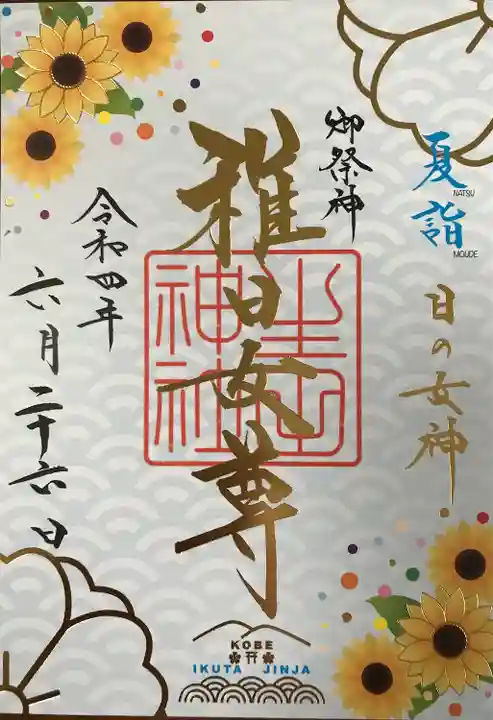 夏詣
NATSU
MOUDE
日の女神
御祭神
稚日女尊
生田神社
令和四年
六月二十六日
KOBE
IKUTA JINJA